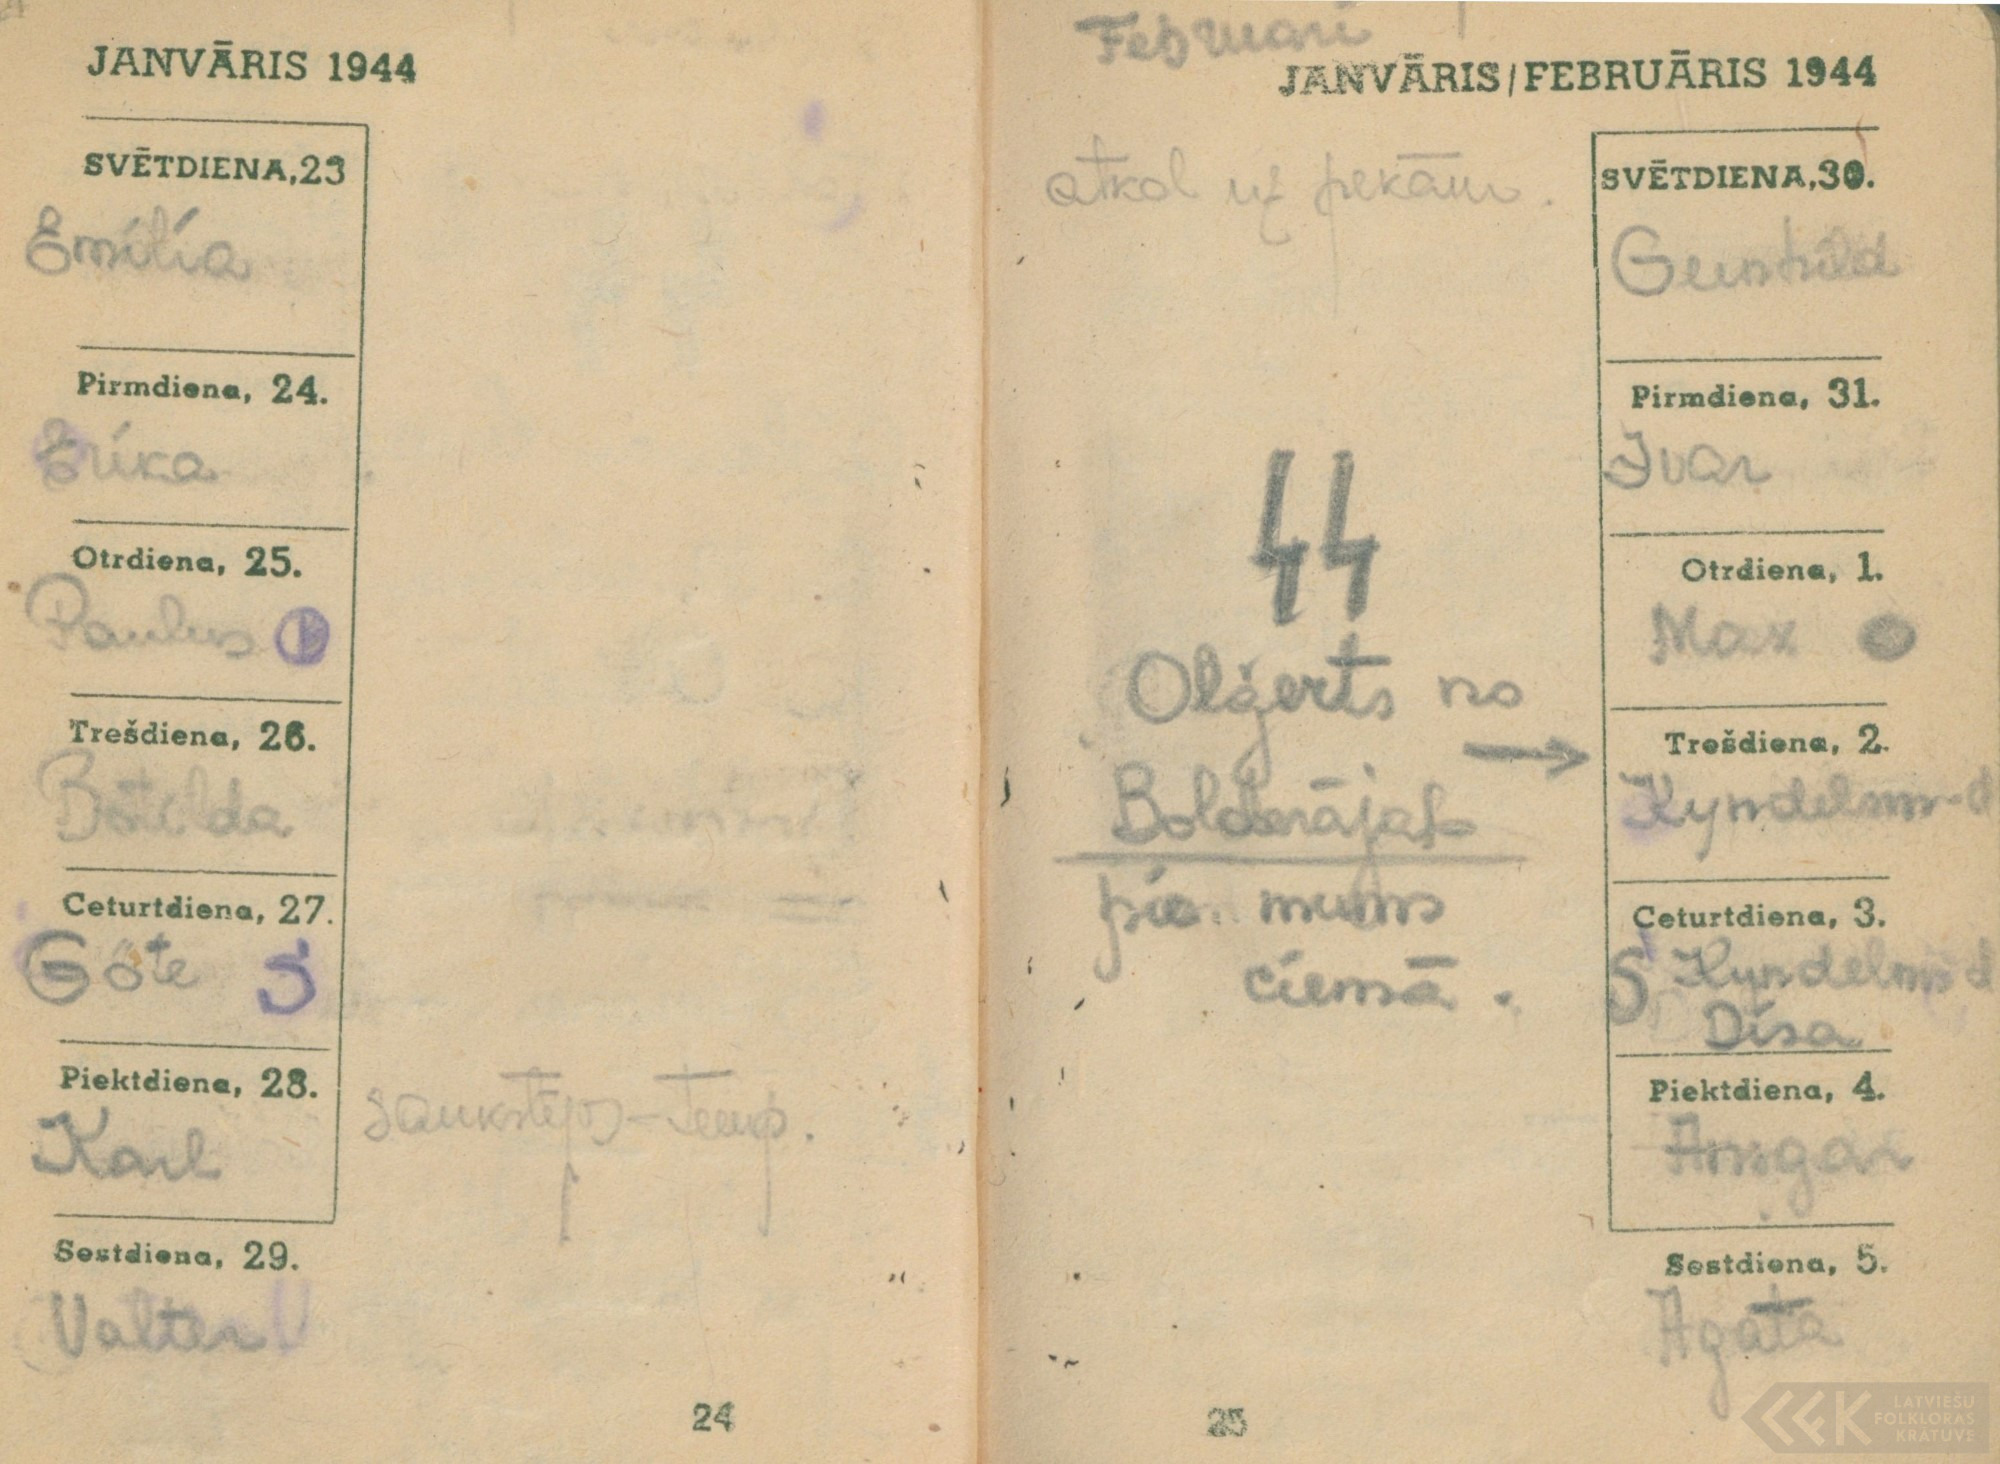 JANVĀRIS 1944
SVĒTDIENA, 23
Emilia
Pirmdiena, 24.
Erika
Otrdiena, 25.
Paulus
Trešdiena, 26.
Botilda
Ceturtdiena, 27.
Göte S
Piektdiena, 28.
Karl
Sestdiena, 29.
Valter V
24
Februari
JANVĀRIS/FEBRUĀRIS 1944
atkal uz pekām.
SVĒTDIENA, 30.
Gunhild
Pirmdiena, 31.
Ivar
Otrdiena, 1.
Max
Oļģerts no
Bolderājas
pie mums
ciemā.
Trešdiena, 2.
Kyndelsm-d
Ceturtdiena, 3.
S Kyndelms d
Disa
Piektdiena, 4.
Ansgar
Sestdiena, 5.
Agata
25
LATVIEŠU
FOLKLORAS
KRĀTUVE